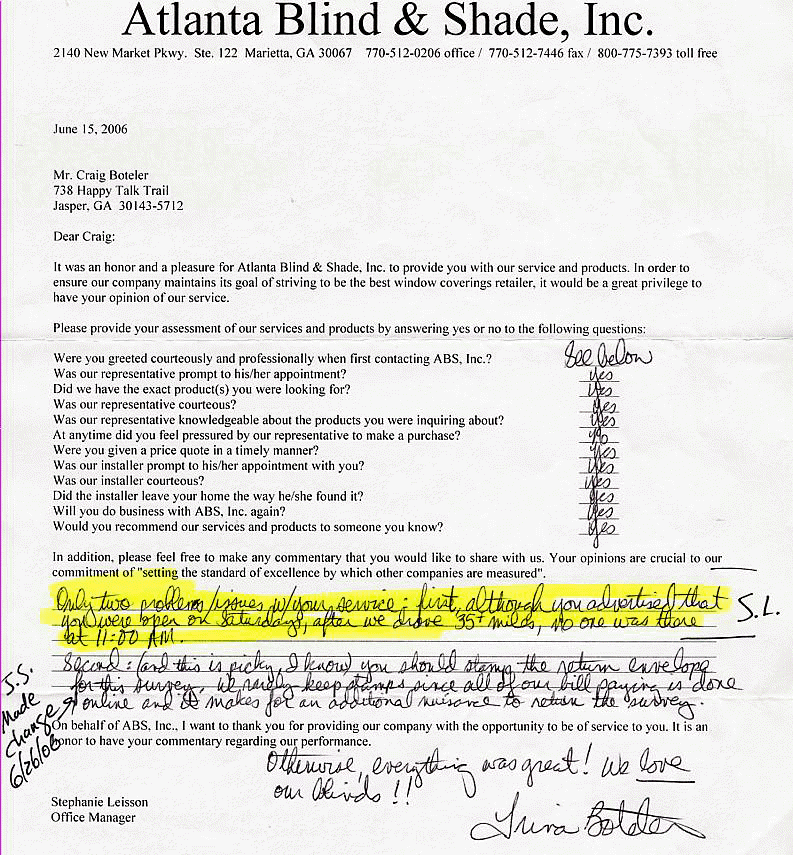 Atlanta Blind & Shade, Inc.
2140 New Market Pkwy. Ste. 122 Marietta, GA 30067 770-512-0206 office / 770-512-7446 fax / 800-775-7393 toll free
June 15, 2006
Mr. Craig Boteler
738 Happy Talk Trail
Jasper, GA 30143-5712
Dear Craig:
It was an honor and a pleasure for Atlanta Blind & Shade, Inc. to provide you with our service and products. In order to
ensure our company maintains its goal of striving to be the best window coverings retailer, it would be a great privilege to
have your opinion of our service.
Please provide your assessment of our services and products by answering yes or no to the following questions:
Were you greeted courteously and professionally when first contacting ABS, Inc.? See below
Was our representative prompt to his/her appointment? yes
Did we have the exact product(s) you were looking for? Yes
Was our representative courteous? yes
Was our representative knowledgeable about the products you were inquiring about? Yes
At anytime did you feel pressured by our representative to make a purchase? No
Were you given a price quote in a timely manner? Yes
Was our installer prompt to his/her appointment with you? Yes
Was our installer courteous? yes
Did the installer leave your home the way he/she found it? yes
Will you do business with ABS, Inc. again? Yes
Would you recommend our services and products to someone you know? yes
In addition, please feel free to make any commentary that you would like to share with us. Your opinions are crucial to our
commitment of "setting the standard of excellence by which other companies are measured".
Only two problems/issues w/your service: first, although you advertised that
you were open on Saturdays, after we drove 35+ miles, no one was there
at 11:00 AM.
S.L.
Second: (and this is picky, I know) you should stamp the return envelope
for this survey. We rarely keep stamps since all of our bill paying is done
online and it makes for an additional nuisance to return the survey.
J.S.
Made
change
6/26/06
On behalf of ABS, Inc., I want to thank you for providing our company with the opportunity to be of service to you. It is an
honor to have your commentary regarding our performance.
Otherwise, everything was great! We love
our blinds!!
Stephanie Leisson
Office Manager
Trina Boteler